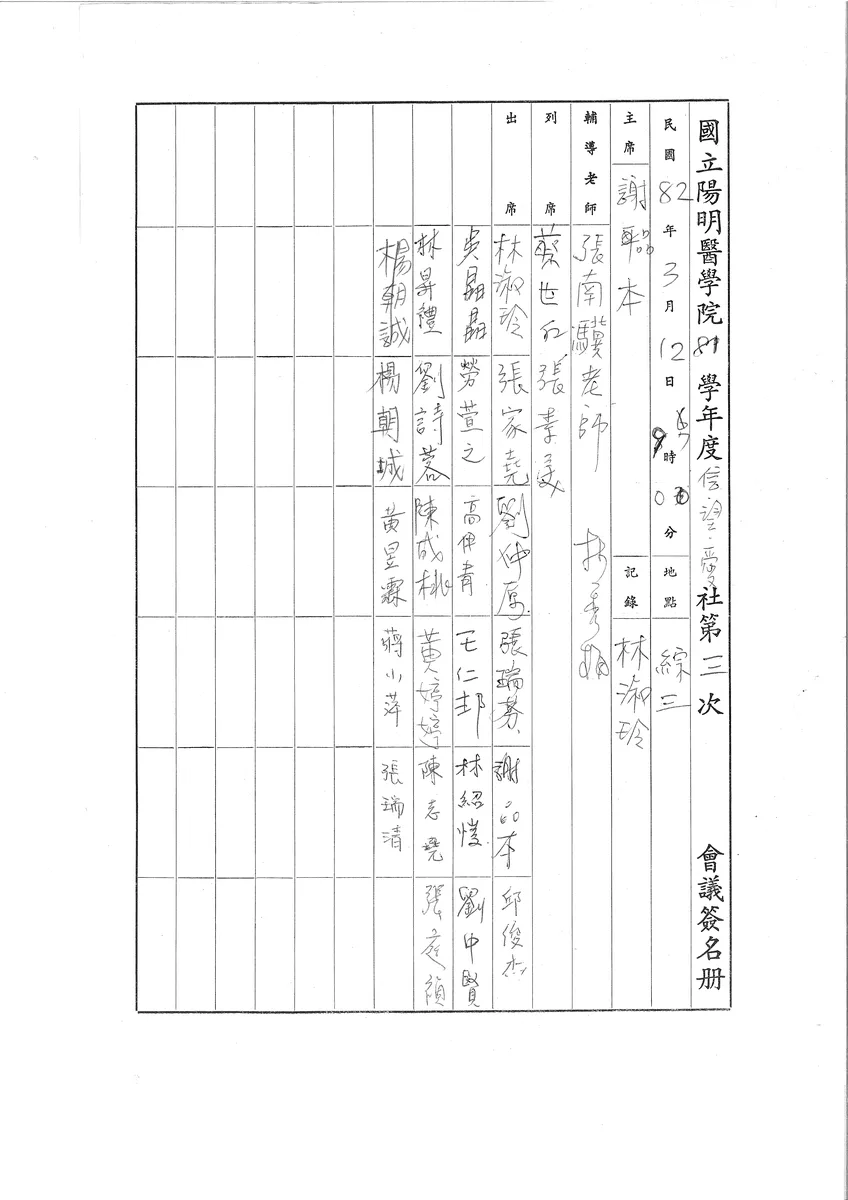 國立陽明醫學院81學年度信望愛社第三次 會議簽名冊
民國82年3月12日 時 分 地點 綜三
主席 謝品本 記錄 林淑玲
輔導老師 張南驥老師
列席 蔡世 張
出席 林淑玲 張家堯 劉仲 張瑞芬 謝品本 邱俊杰
吳晶晶 勞萱之 高伊青 王仁邦 林紹愷 劉中賢
林昇禮 劉詩蓉 陳成桃 黃婷婷 陳志堯 張庭禎
楊朝誠 楊朝城 黃昱霖 蔣小萍 張瑞清